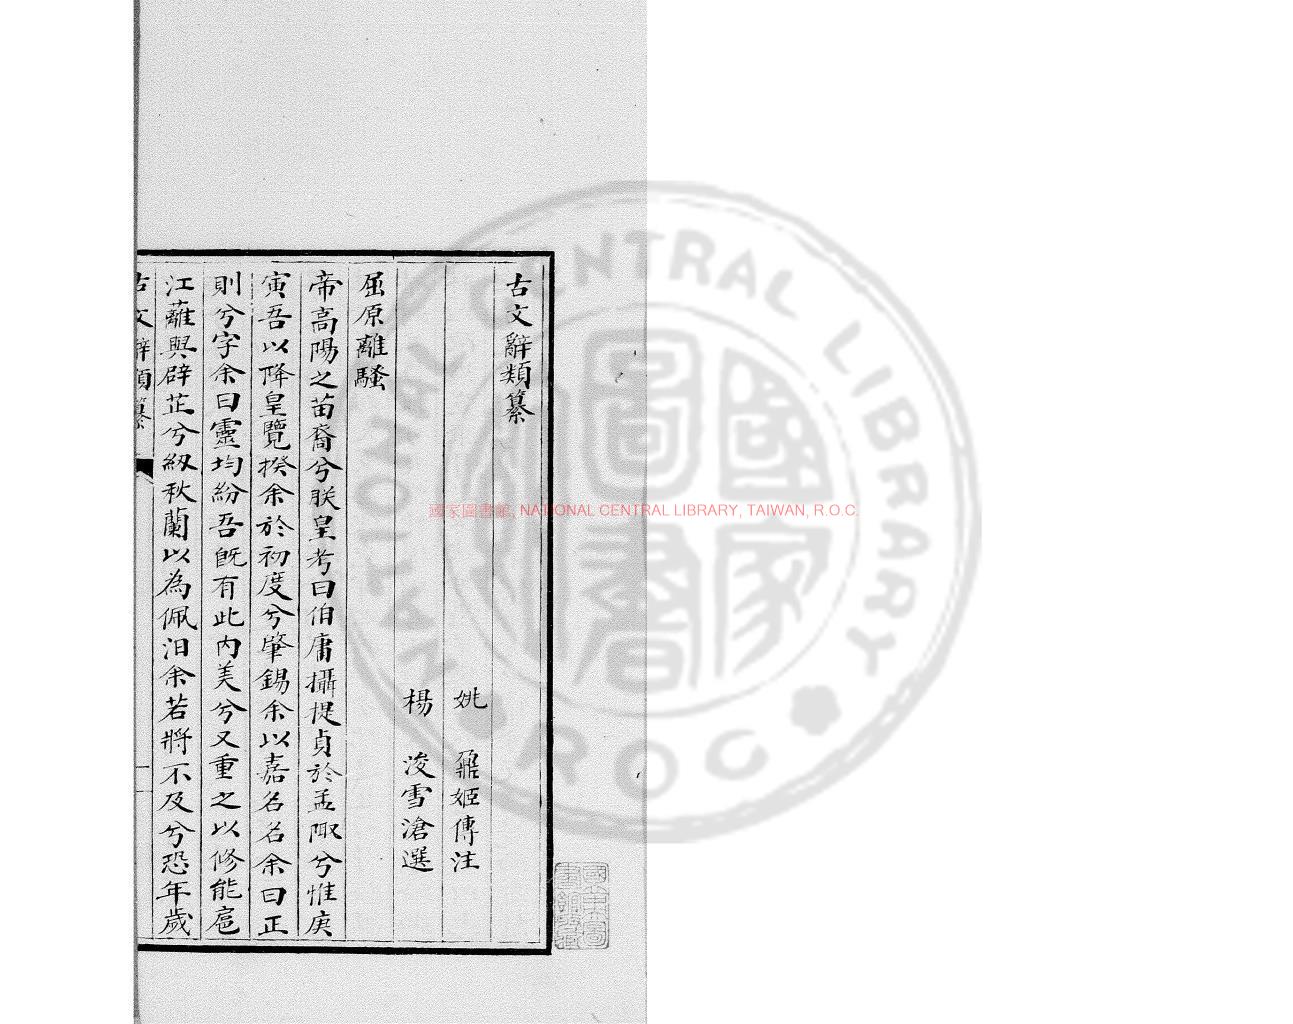 古文辭類纂
姚鼐姬傳注
楊浚雪滄選
屈原離騷
帝高陽之苗裔兮朕皇考曰伯庸攝提貞於孟陬兮惟庚
寅吾以降皇覽揆余於初度兮肇錫余以嘉名名余曰正
則兮字余曰靈均紛吾既有此內美兮又重之以修能扈
江蘺與辟芷兮紉秋蘭以為佩汩余若將不及兮恐年歲
古文辭類纂
國家圖書館, NATIONAL CENTRAL LIBRARY, TAIWAN, R.O.C.
NATIONAL CENTRAL LIBRARY
ROC
國家圖書館